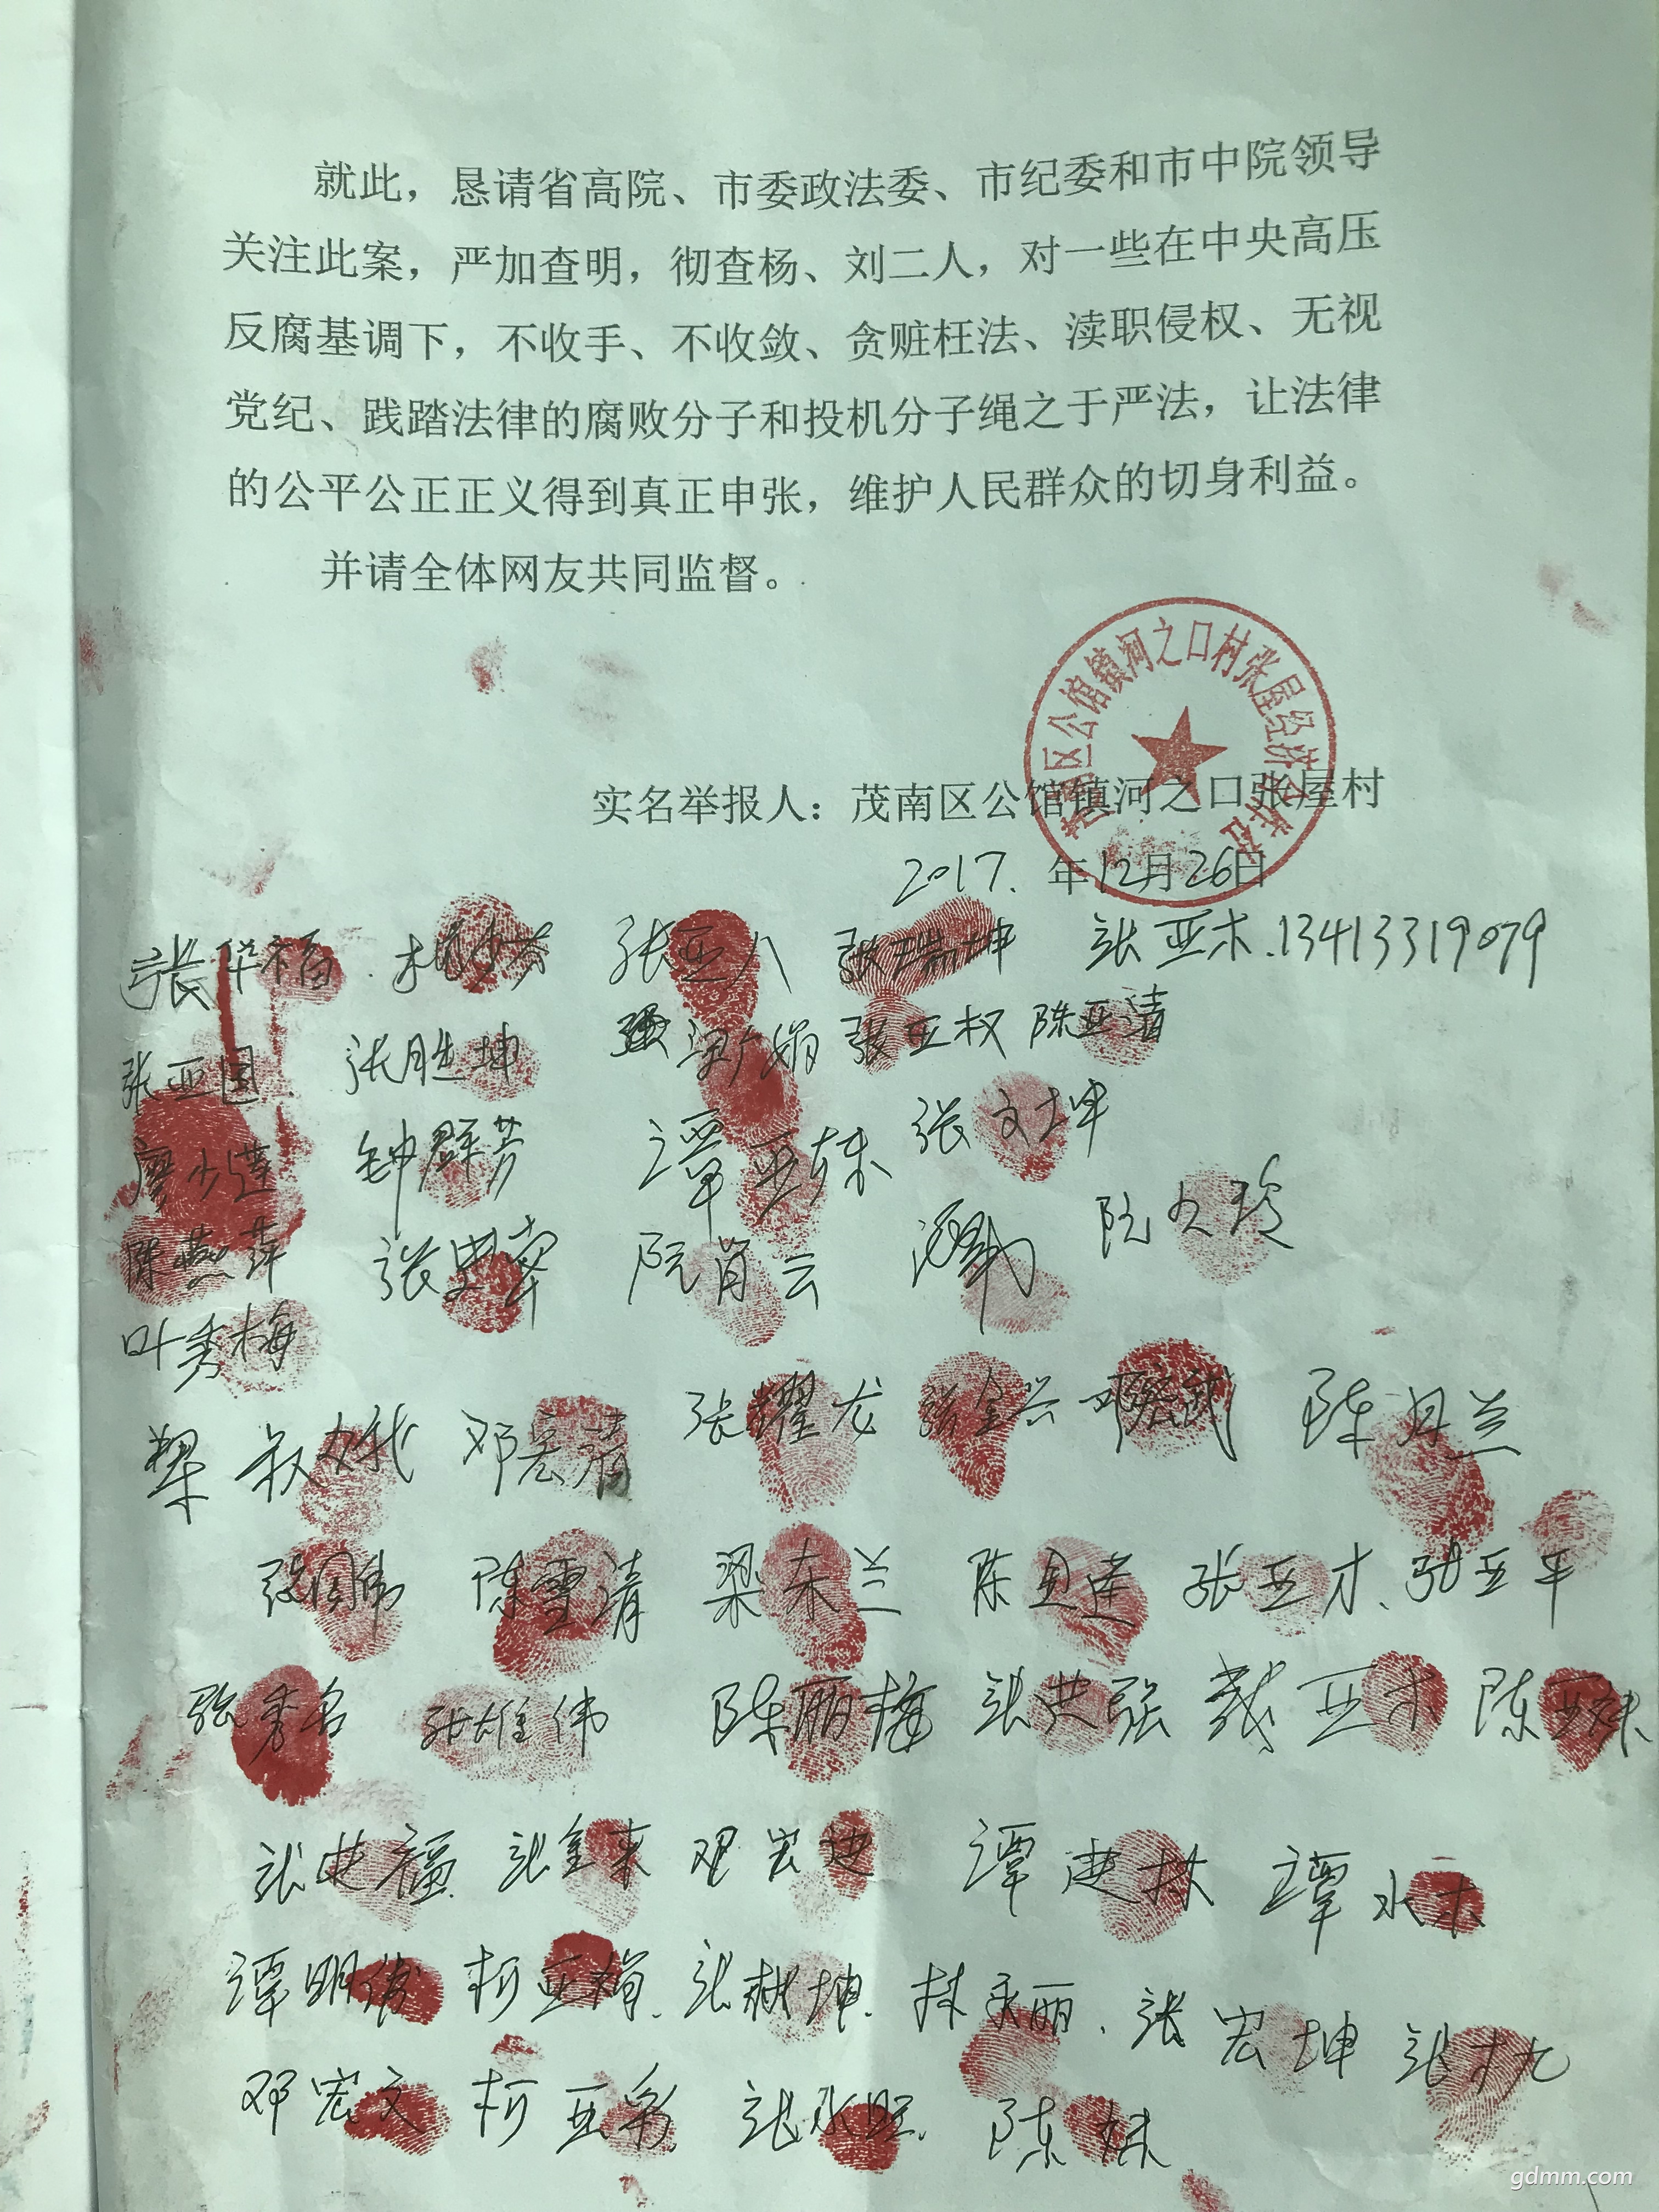 就此，恳请省高院、市委政法委、市纪委和市中院领导
关注此案，严加查明，彻查杨、刘二人，对一些在中央高压
反腐基调下，不收手、不收敛、贪赃枉法、渎职侵权、无视
党纪、践踏法律的腐败分子和投机分子绳之于严法，让法律
的公平公正正义得到真正申张，维护人民群众的切身利益。
并请全体网友共同监督。
区公馆镇河之口村张屋经济合作社
实名举报人：茂南区公馆镇河之口张屋村
2017. 年12月26日
张华福 张亚八 张瑞坤 张亚木.13413319079
张亚国 张胜坤 张亚权 陈亚清
廖少莲 钟群芳 谭亚东 张文坤
陈燕萍 张 阮肖云 阮
叶秀梅
梁叔娥 邓宏清 张耀龙 张金兴 邓宏武 陈月兰
张国伟 陈雪清 梁东兰 陈 莲 张亚才、张亚平
张秀名 张雄伟 陈丽梅 张典强 戴亚木 陈亚妹
张典福 张金来 邓宏迪 谭建林 谭水木
谭明伟 柯亚娟. 张 坤. 林永丽. 张宏坤 张九
邓宏文 柯亚彩 张永旺. 陈妹
gdmm.com